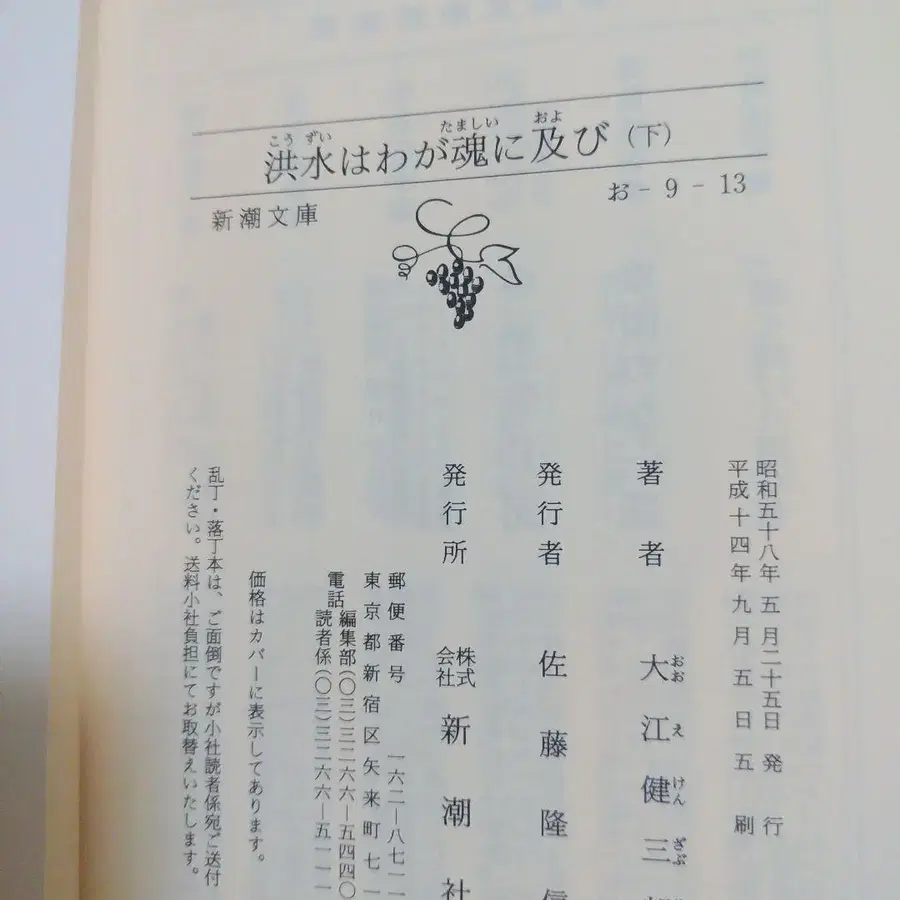 洪水はわが魂に及び（下）
新潮文庫
お-9-13
昭和五十八年五月二十五日発行
平成十四年九月五日五刷
著者 大江健三
発行者 佐藤隆信
発行所 株式会社 新潮社
郵便番号 一六二―八七一一
東京都新宿区矢来町七一
電話 編集部(〇三)三二六六―五四四〇
読者係(〇三)三二六六―五一一一
価格はカバーに表示してあります。
乱丁・落丁本は、ご面倒ですが小社読者係宛ご送付
ください。送料小社負担にてお取替えいたします。